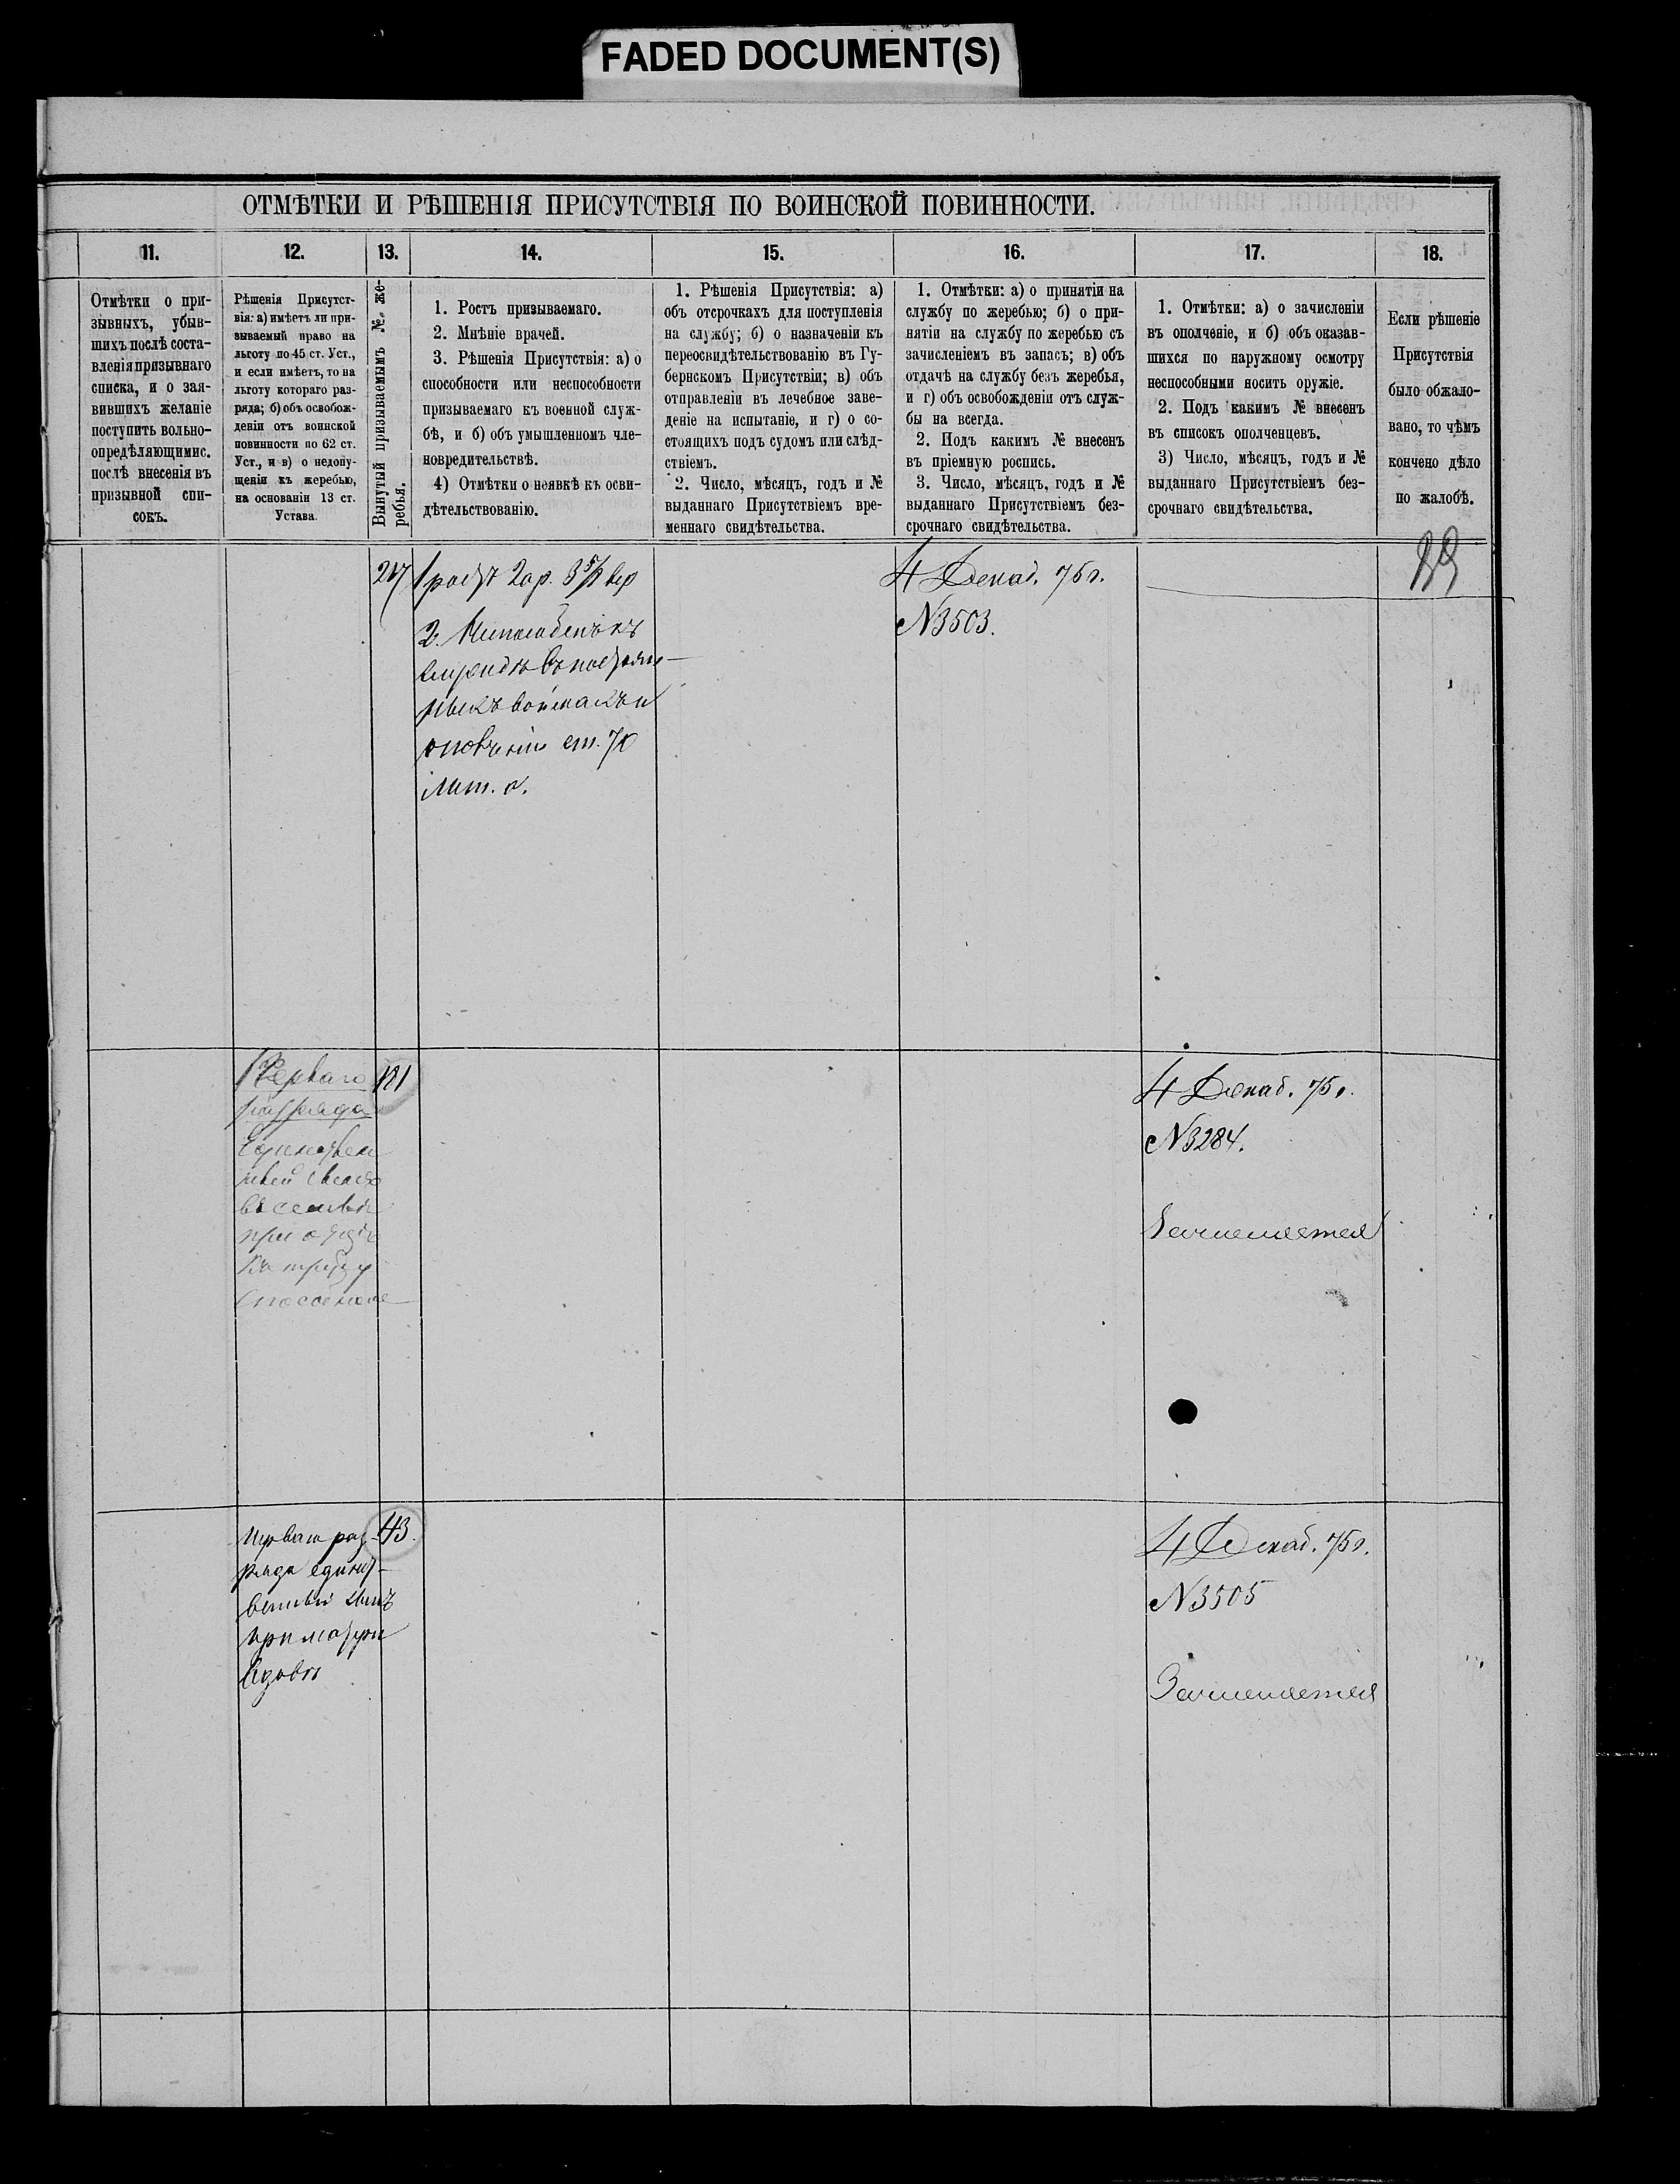 FADED DOCUMENT(S)
ОТМѢТКИ И РѢШЕНІЯ ПРИСУТСТВІЯ ПО ВОИНСКОЙ ПОВИННОСТИ.
11.
Отмѣтки о при-
зывныхъ, убыв-
шихъ послѣ соста-
вленія призывнаго
списка, и о зая-
вившихъ желаніе
поступить вольно-
опредѣляющимис.
послѣ внесенія въ
призывной спи-
сокъ.
12.
Рѣшенія Присутст-
вія: а) имѣетъ ли при-
зываемый право на
льготу по 45 ст. Уст.,
и если имѣетъ, то на
льготу котораго раз-
ряда; б) объ освобож-
деніи отъ воинской
повинности по 62 ст.
Уст., и в) о недопу-
щеніи къ жеребью,
на основаніи 13 ст.
Устава.
13.
Вынутый призываемымъ № же-
ребья.
14.
1. Ростъ призываемаго.
2. Мнѣніе врачей.
3. Рѣшенія Присутствія: а) о
способности или неспособности
призываемаго къ военной служ-
бѣ, и б) объ умышленномъ чле-
новредительствѣ.
4) Отмѣтки о неявкѣ къ осви-
дѣтельствованію.
15.
1. Рѣшенія Присутствія: а)
объ отсрочкахъ для поступленія
на службу; б) о назначеніи къ
переосвидѣтельствованію въ Гу-
бернскомъ Присутствіи; в) объ
отправленіи въ лечебное заве-
деніе на испытаніе, и г) о со-
стоящихъ подъ судомъ или слѣд-
ствіемъ.
2. Число, мѣсяцъ, годъ и №
выданнаго Присутствіемъ вре-
меннаго свидѣтельства.
16.
1. Отмѣтки: а) о принятіи на
службу по жеребью; б) о при-
нятіи на службу по жеребью съ
зачисленіемъ въ запасъ; в) объ
отдачѣ на службу безъ жеребья,
и г) объ освобожденіи отъ служ-
бы на всегда.
2. Подъ какимъ № внесенъ
въ пріемную роспись.
3. Число, мѣсяцъ, годъ и №
выданнаго Присутствіемъ без-
срочнаго свидѣтельства.
17.
1. Отмѣтки: а) о зачисленіи
въ ополченіе, и б) объ оказав-
шихся по наружному осмотру
неспособными носить оружіе.
2. Подъ какимъ № внесенъ
въ списокъ ополченцевъ.
3) Число, мѣсяцъ, годъ и №
выданнаго Присутствіемъ без-
срочнаго свидѣтельства.
18.
Если рѣшеніе
Присутствія
было обжало-
вано, то чѣмъ
кончено дѣло
по жалобѣ.
1 ростъ 2 ар. 3 5/8 вер
2. Неспособенъ къ
войскахъ и
ополченіи ст. 70
лит. а.
4 Декаб. 75 г.
№3503.
Перваго
разряда
Единствен
ный
въ семьѣ
при отцѣ
къ труду
181
4 Декаб. 75 г.
№3284.
Зачисляется
Перваго раз-
ряда единст-
венный сынъ
при матери
вдовѣ
43.
4 Декаб. 75 г.
№3505
Зачисляется